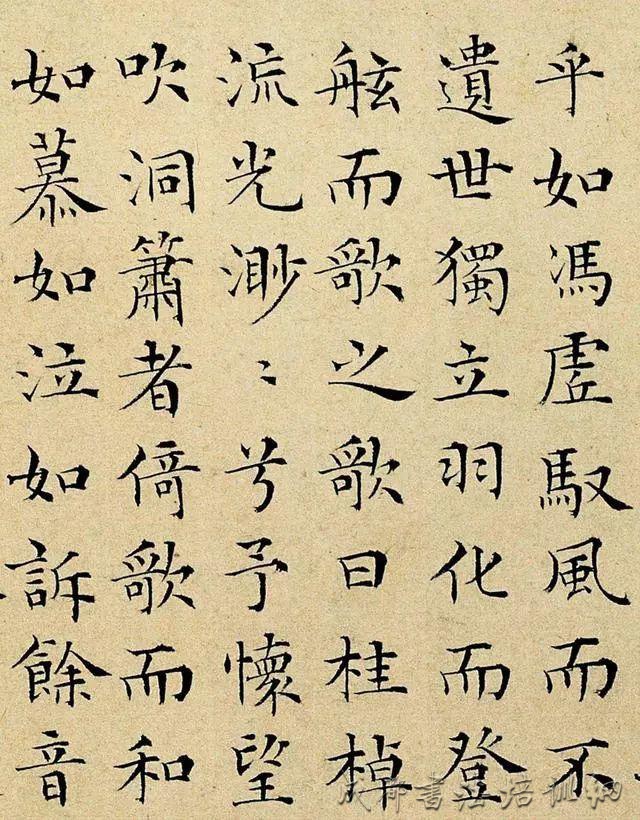 乎如馮虗馭風而不
遺世獨立羽化而登
舷而歌之歌曰桂棹
流光渺〻兮予懷望
吹洞簫者倚歌而和
如慕如泣如訴餘音
成都書法培训网